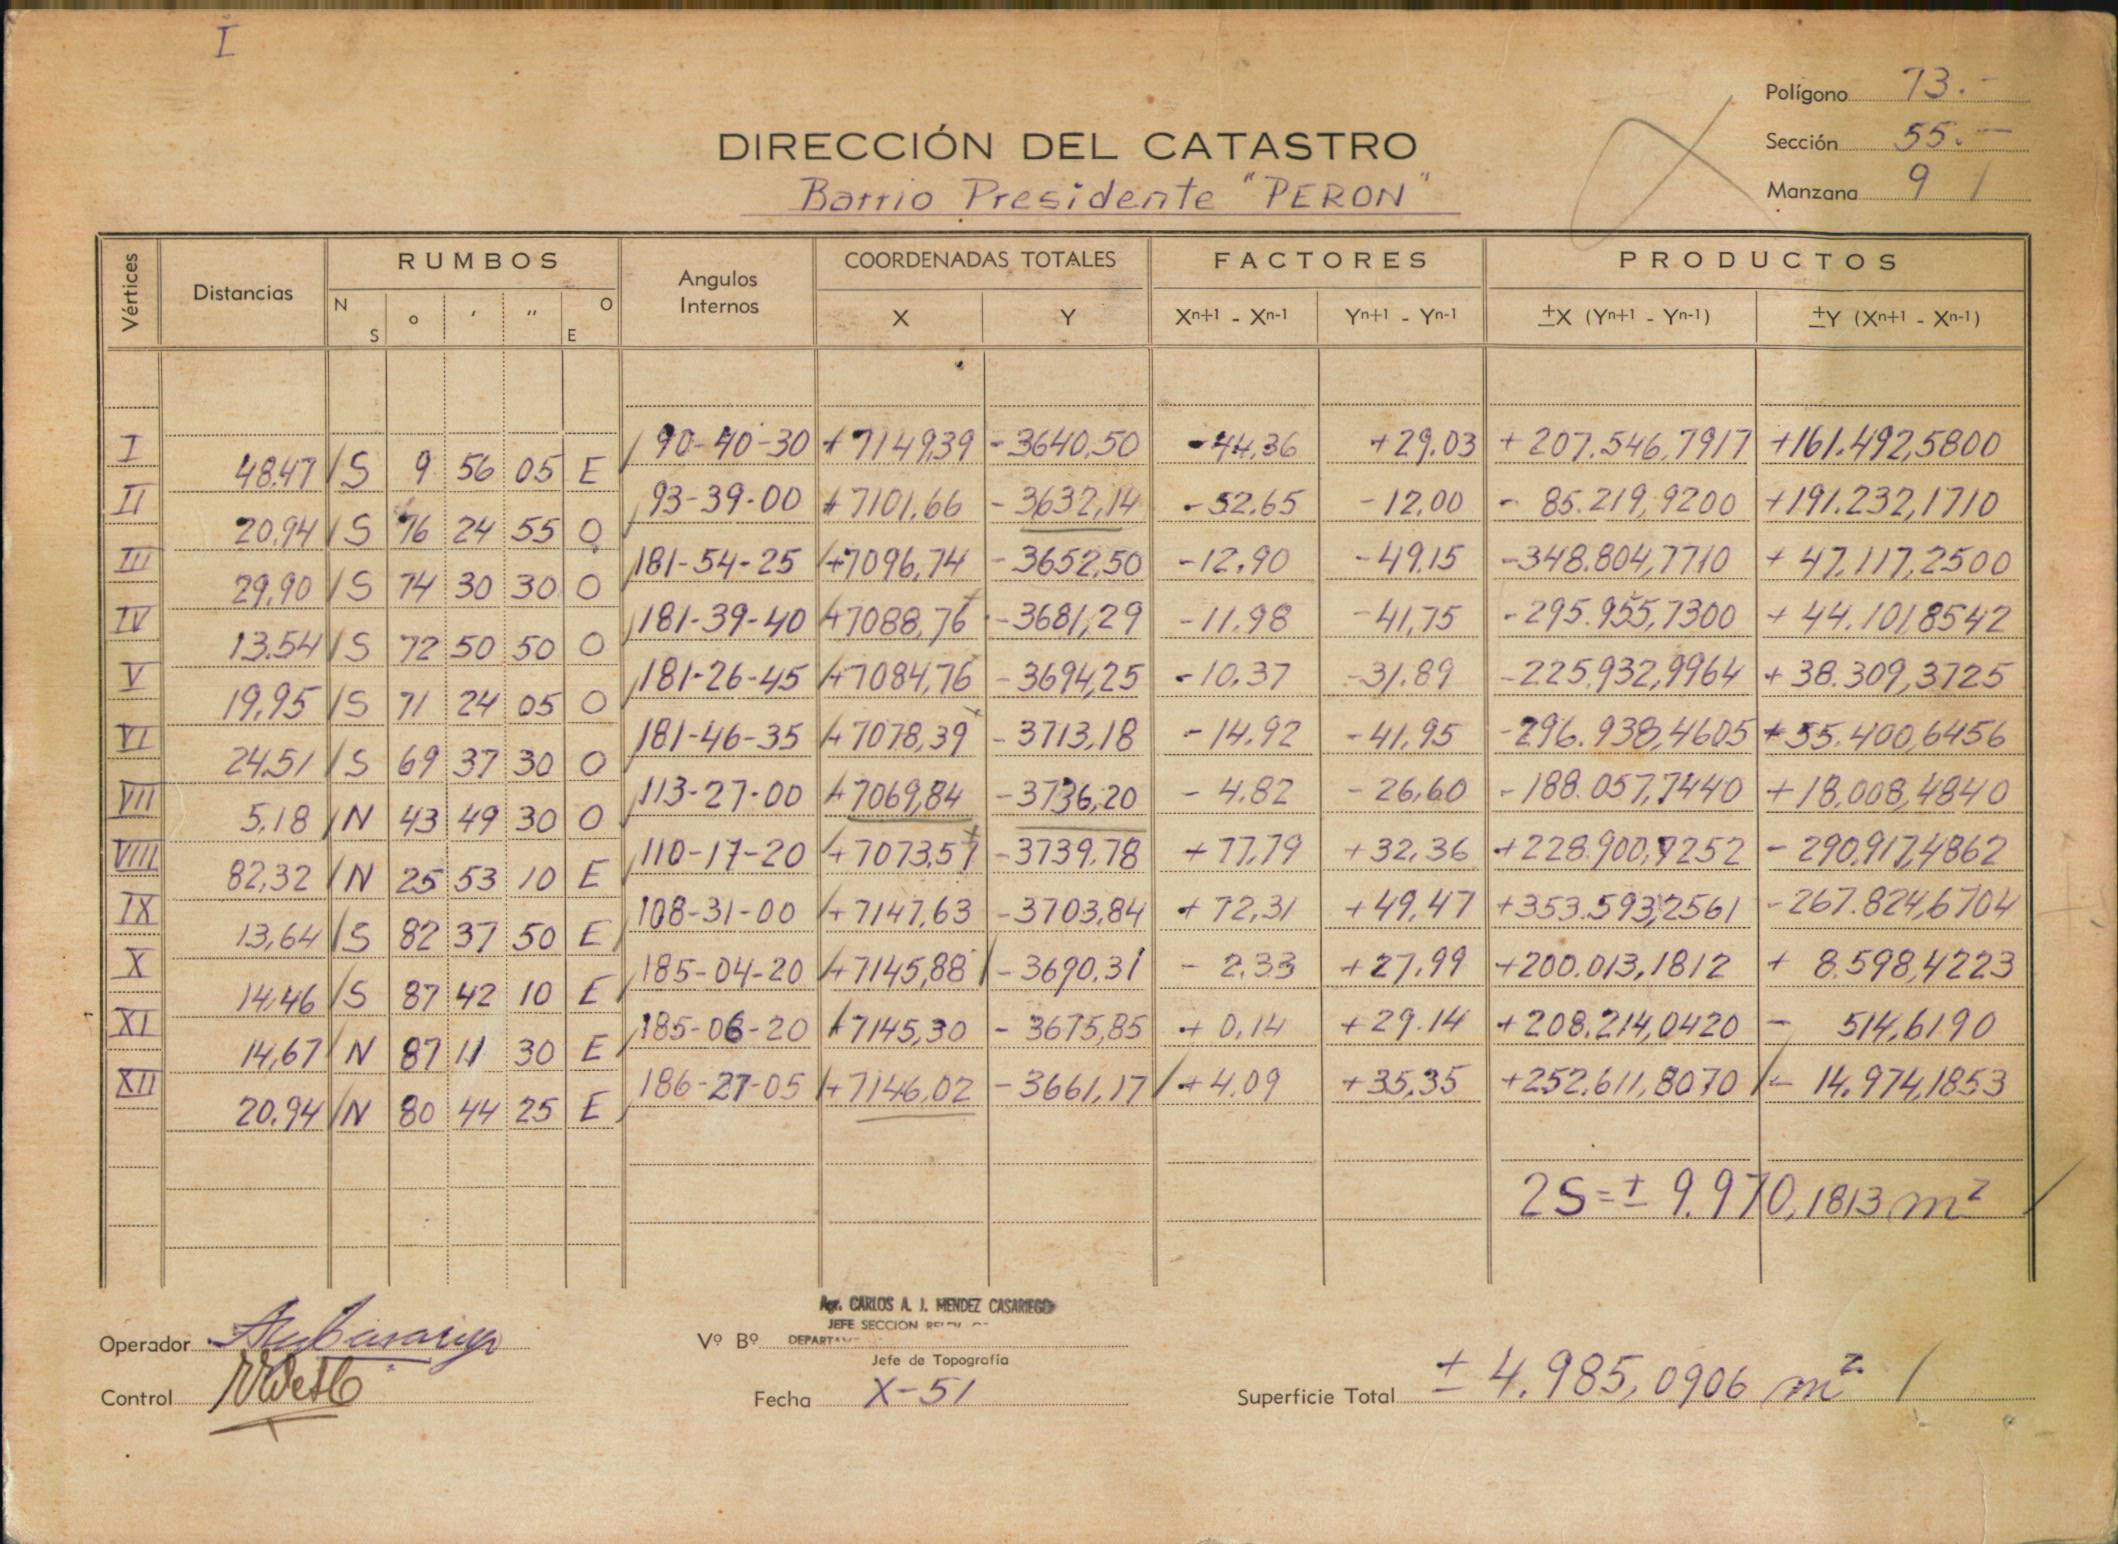 I
Polígono 73.-
Sección 55.-
Manzana 9
DIRECCIÓN DEL CATASTRO
Barrio Presidente "PERON"
Vértices Distancias RUMBOS Angulos Internos COORDENADAS TOTALES FACTORES PRODUCTOS
N S ° ′ ″ O E X Y Xn+1 - Xn-1 Yn+1 - Yn-1 ±X (Yn+1 - Yn-1) ±Y (Xn+1 - Xn-1)
I 90-40-30 +7149,39 -3640,50 -44,36 +29.03 +207.546,7917 +161.492,5800
48.47 S 9 56 05 E
II 93-39-00 +7101.66 -3632,14 -52.65 -12.00 -85.219,9200 +191.232,1710
20.94 S 76 24 55 O
III 181-54-25 +7096,74 -3652,50 -12.90 -49.15 -348.804,7710 +47.117,2500
29,90 S 74 30 30 O
IV 181-39-40 +7088,76 -3681,29 -11.98 -41,75 -295.955,7300 +44.101,8542
13.54 S 72 50 50 O
V 181-26-45 +7084,76 -3694,25 -10.37 -31.89 -225.932,9964 +38.309,3725
19,95 S 71 24 05 O
VI 181-46-35 +7078,39 -3713,18 -14.92 -41,95 -296.938,4605 +55.400,6456
24,51 S 69 37 30 O
VII 113-27-00 +7069,84 -3736,20 -4.82 -26,60 -188.057,7440 +18.008,4840
5,18 N 43 49 30 O
VIII 110-17-20 +7073,57 -3739.78 +77,79 +32,36 +228.900,7252 -290.917,4862
82,32 N 25 53 10 E
IX 108-31-00 +7147,63 -3703,84 +72,31 +49,47 +353.593,2561 -267.824,6704
13,64 S 82 37 50 E
X 185-04-20 +7145,88 -3690.31 -2.33 +27.99 +200.013,1812 +8.598,4223
14,46 S 87 42 10 E
XI 185-06-20 +7145,30 -3675,85 +0,14 +29.14 +208.214,0420 -514,6190
14,67 N 87 11 30 E
XII 186-27-05 +7146,02 -3661,17 +4.09 +35,35 +252.611,8070 -14.974,1853
20.94 N 80 44 25 E
2S=± 9.970,1813 m²
Agr. CARLOS A. J. MENDEZ CASARIEGO
JEFE SECCION
Operador
Vº Bº DEPARTA
Jefe de Topografía
Control
Fecha X-51
Superficie Total ± 4.985,0906 m²